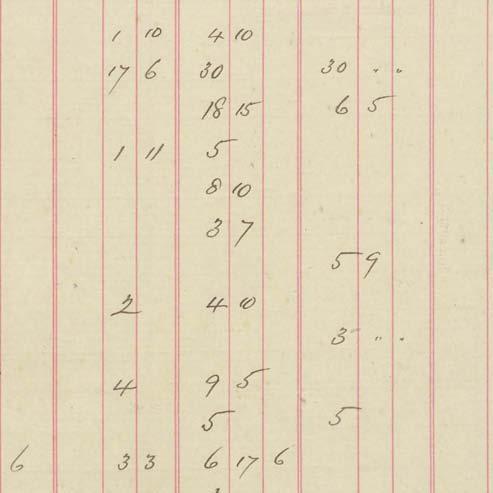 1 10 4 10
17 6 30 30 " "
18 15 6 5
1 11 5
8 10
3 7
5 9
2 4 10
3 " "
4 9 5
5 5
6 3 3 6 17 6